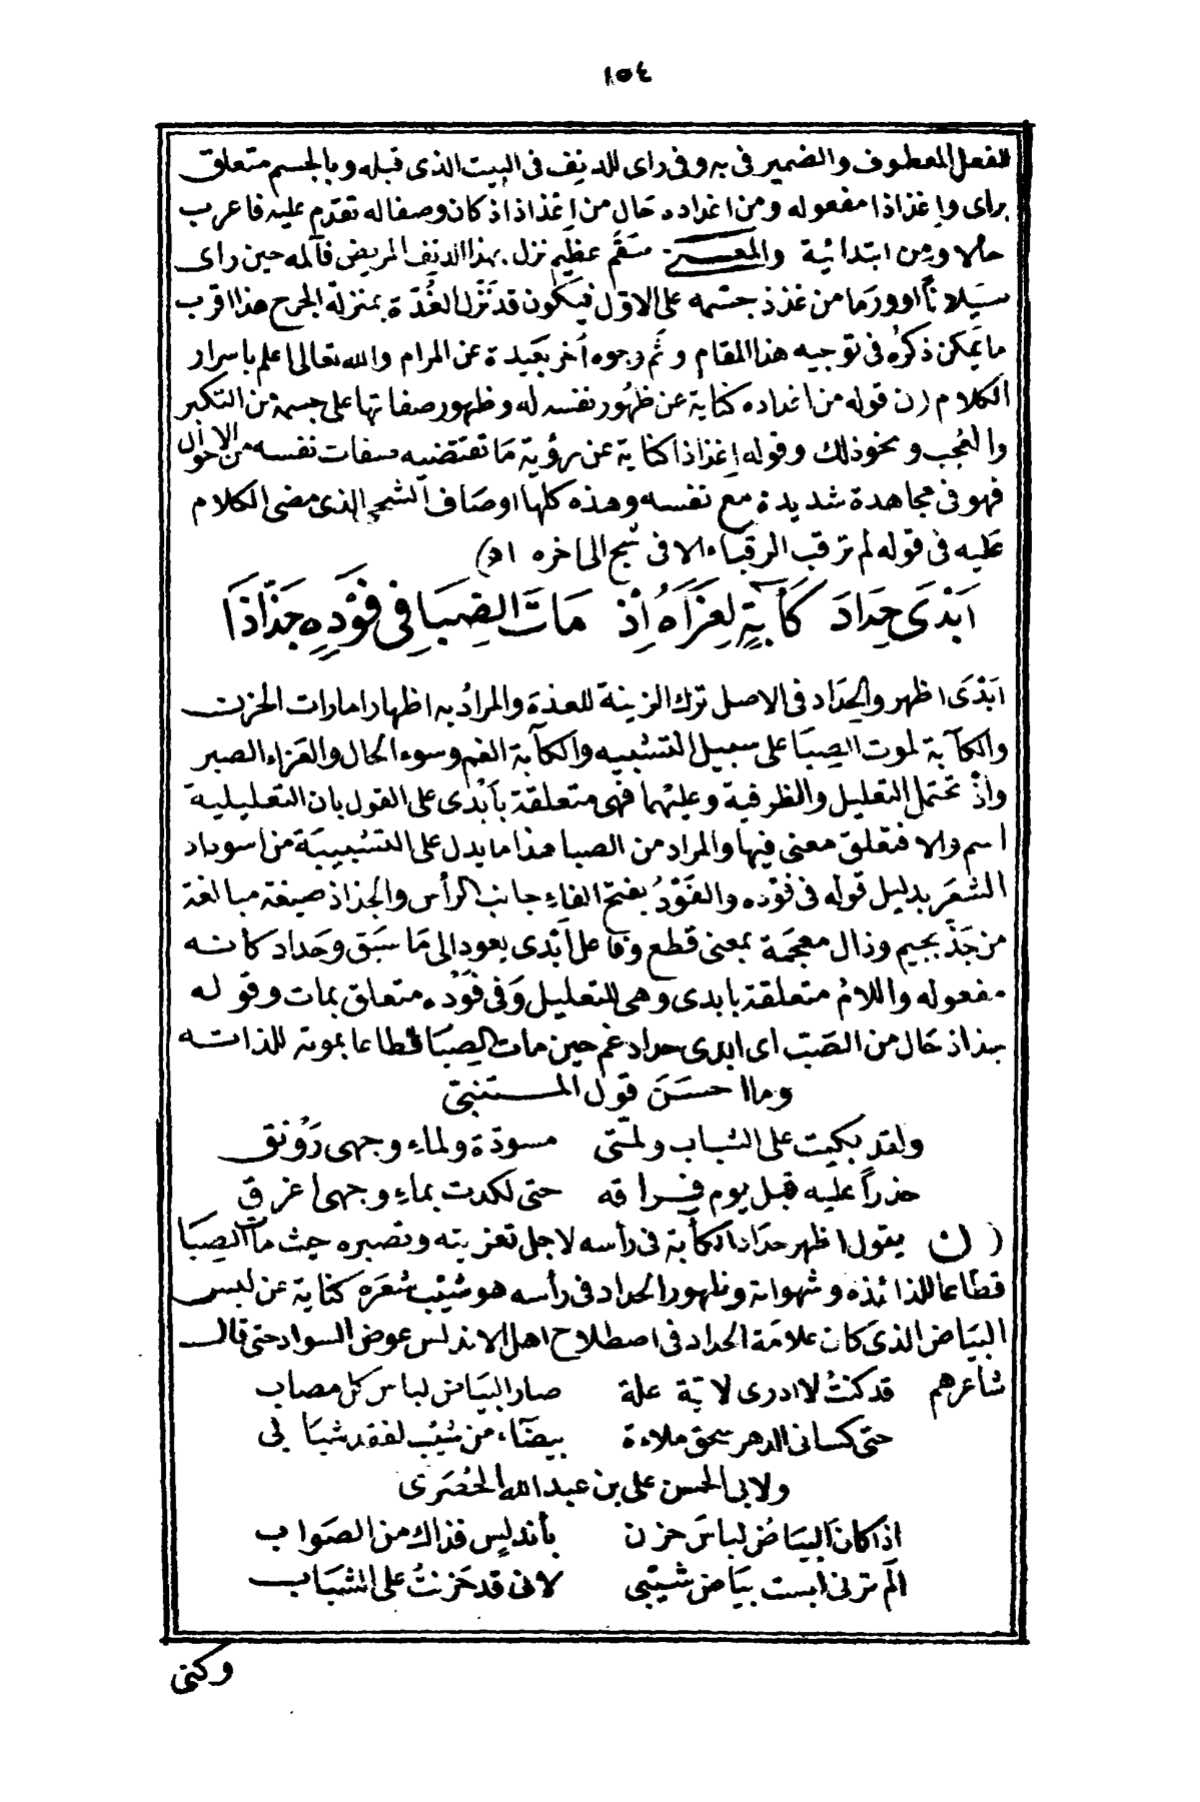 ١٥٤
للفعل المعطوف والضمير فى به وفى راى للدنف فى البيت الذى قبله وبالجسم متعلق
براى واغذاذا مفعوله ومن اغداده حال من اغذاذا اذ كان وصفا له تقدم عليه فاعرب
حالا ومن ابتدائية والمعنى سَقَم عظيم نزل بهذا الدنف المريض فآلمه حين راى
سيلانًا اوورما من غذذ جسمه على الاوّل فيكون قد نَزّل الغُدّة بمنزلة الجرح هذا اقرب
ما يمكن ذكره فى توجيه هذا المقام وثَم وجوه أخر بَعيدة عن المرام والله تعالى اعلم باسرار
الكلام (ن قوله من اغداده كناية عن ظهُور نفسه له وظهور صفاتها على جسمه من التكبر
والعُجب ونحو ذلك وقوله إغذاذا كناية عن رؤية مَا تقتضيه صفات نفسه من الاحوال
فهو فى مجاهدة شديدة مع نفسه وهذه كلها اوصَاف الشجى الذى مضى الكلام
عَليه فى قوله لم ترقب الرقباء الا فى شج الى اخره اهـ)
اَبْدَى حِدَادَ كَأبَةٍ لِعَزَاهُ اِذْ مَاتَ الصِبَا فِى فَوْدِهِ جَذّاذَا
ابَدْىَ اظهر والحِدَاد فى الاصل ترك الزينة للعدة والمرادُ به اظهار امارات الحزن
والكآبة لموت الصِبَا على سبيل التشبيه والكآبة الغم وسوء الحال والعَزاء الصبر
واذْ تحتمل التعليل والظرفية وعليهما فهى متعلقة بأبْدى على القول بان التعليلية
اسم والا فتعلق معنى فيها والمراد من الصبا هنا ما يدل على التشبيبَة من اسوداد
الشعَر بدليل قوله فى فوْده والفَوْدُ بفتح الفاء جانب الرأس والجذاذ صيغة مبالغة
من جَذّ بجيم وذال معجَمة بمعنى قطع وفاعل اَبْدى يعود الى مَا سَبَق وحِداد كآبة
مفعوله واللامُ متعلقة بابدى وهى للتعليل وَفى فَوْده متعلق بمات وقوله
جذاذ حَال من الصَبّ اى ابدى حداد غم حين مات الصِبَا قطاعا بموته للذاته
وما احسَنَ قول المتنبّى
ولقد بكيت على الشباب ولمتى مسودّة ولماء وجهى رَوْنق
حذراً عليه قبل يوم فراقه حتى لكدت بماء وجهى اغرق
(ن يقول اظهر حدَاد الكآبة فى رأسه لاجل تعزيته وتصبره حيث مات الصِبَا
قطاعا للذائذه وشهواته وظهور الحداد فى رأسه هو شَيْب شعَره كناية عن لبس
البيَاض الذى كان علامَة الحداد فى اصطلاح اهل الاندلس عوض السواد حتى قال
شاعرهم قد كنتُ لا ادرى لاية علة صار البيَاض لباس كل مصاب
حتى كسانى الدهر سحق ملاءة بيضاء من شيْب لفقد شبَابى
ولابى الحسن على بن عبد الله الحُصَرى
اذا كانَ البيَاضُ لباسَ حزن بأندلسٍ فذاك من الصَواب
الَم ترنى لبست بيَاض شيبْى لانى قد حَزنتُ على الشبَاب
وكنى